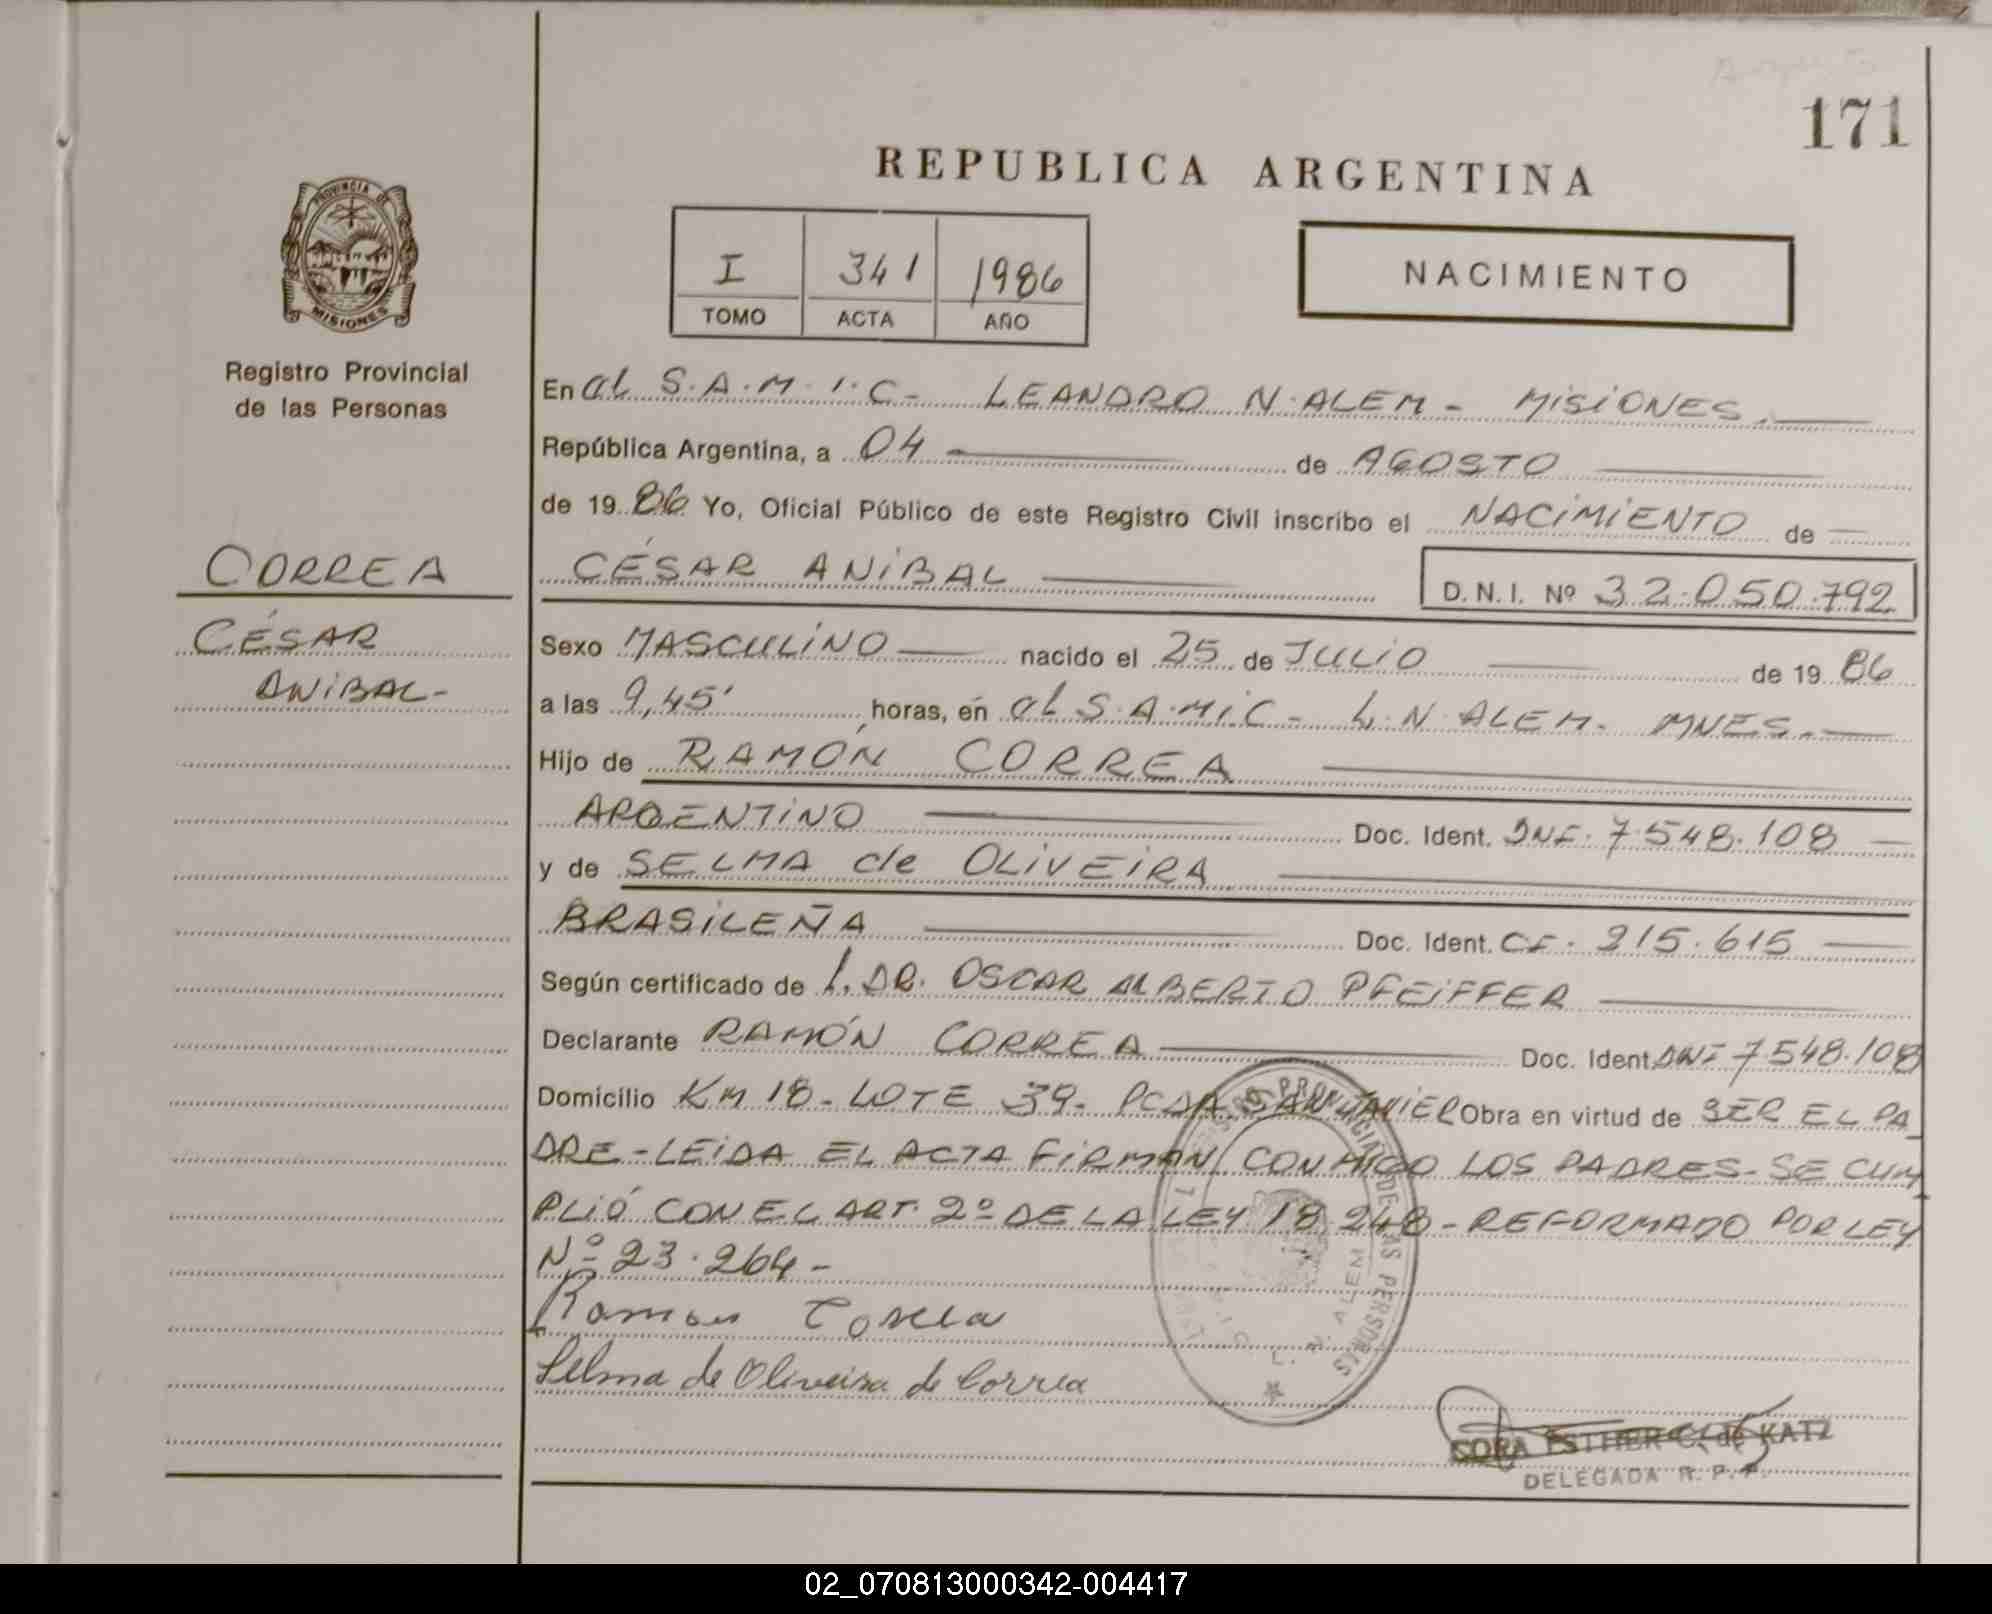 171
REPUBLICA ARGENTINA
PROVINCIA DE
MISIONES
Registro Provincial
de las Personas
I 341 1986
TOMO ACTA AÑO
NACIMIENTO
CORREA
CÉSAR
ANIBAL-
En al S.A.M.I.C- LEANDRO N. ALEM - MISIONES.
República Argentina, a 04 de AGOSTO
de 19 86 Yo, Oficial Público de este Registro Civil inscribo el NACIMIENTO de
CÉSAR ANIBAL D.N.I. Nº 32.050.792
Sexo MASCULINO nacido el 25 de JULIO de 19 86
a las 9,45' horas, en al S.A.MIC- L.N. ALEM- MNES.
Hijo de RAMÓN CORREA
ARGENTINO Doc. Ident. DNI. 7.548.108
y de SELMA de OLIVEIRA
BRASILEÑA Doc. Ident. CI. 215.615
Según certificado de DR. OSCAR ALBERTO PFEIFFER
Declarante RAMÓN CORREA Doc. Ident. DNI 7.548.108
Domicilio KM 18- LOTE 39- PCDA SAN JAVIER Obra en virtud de SER EL PA_
DRE-LEIDA EL ACTA FIRMAN CONMIGO LOS PADRES-SE CUM_
PLIÓ CON EL ART. 2º DE LA LEY 18.248-REFORMADO POR LEY
Nº 23.264-
Ramon Correa
Selma de Oliveira de Correa
PROVINCIAL DE LAS PERSONAS
L. N. ALEM
SORA ESTHER C. de KATZ
DELEGADA R. P. P.
02_070813000342-004417